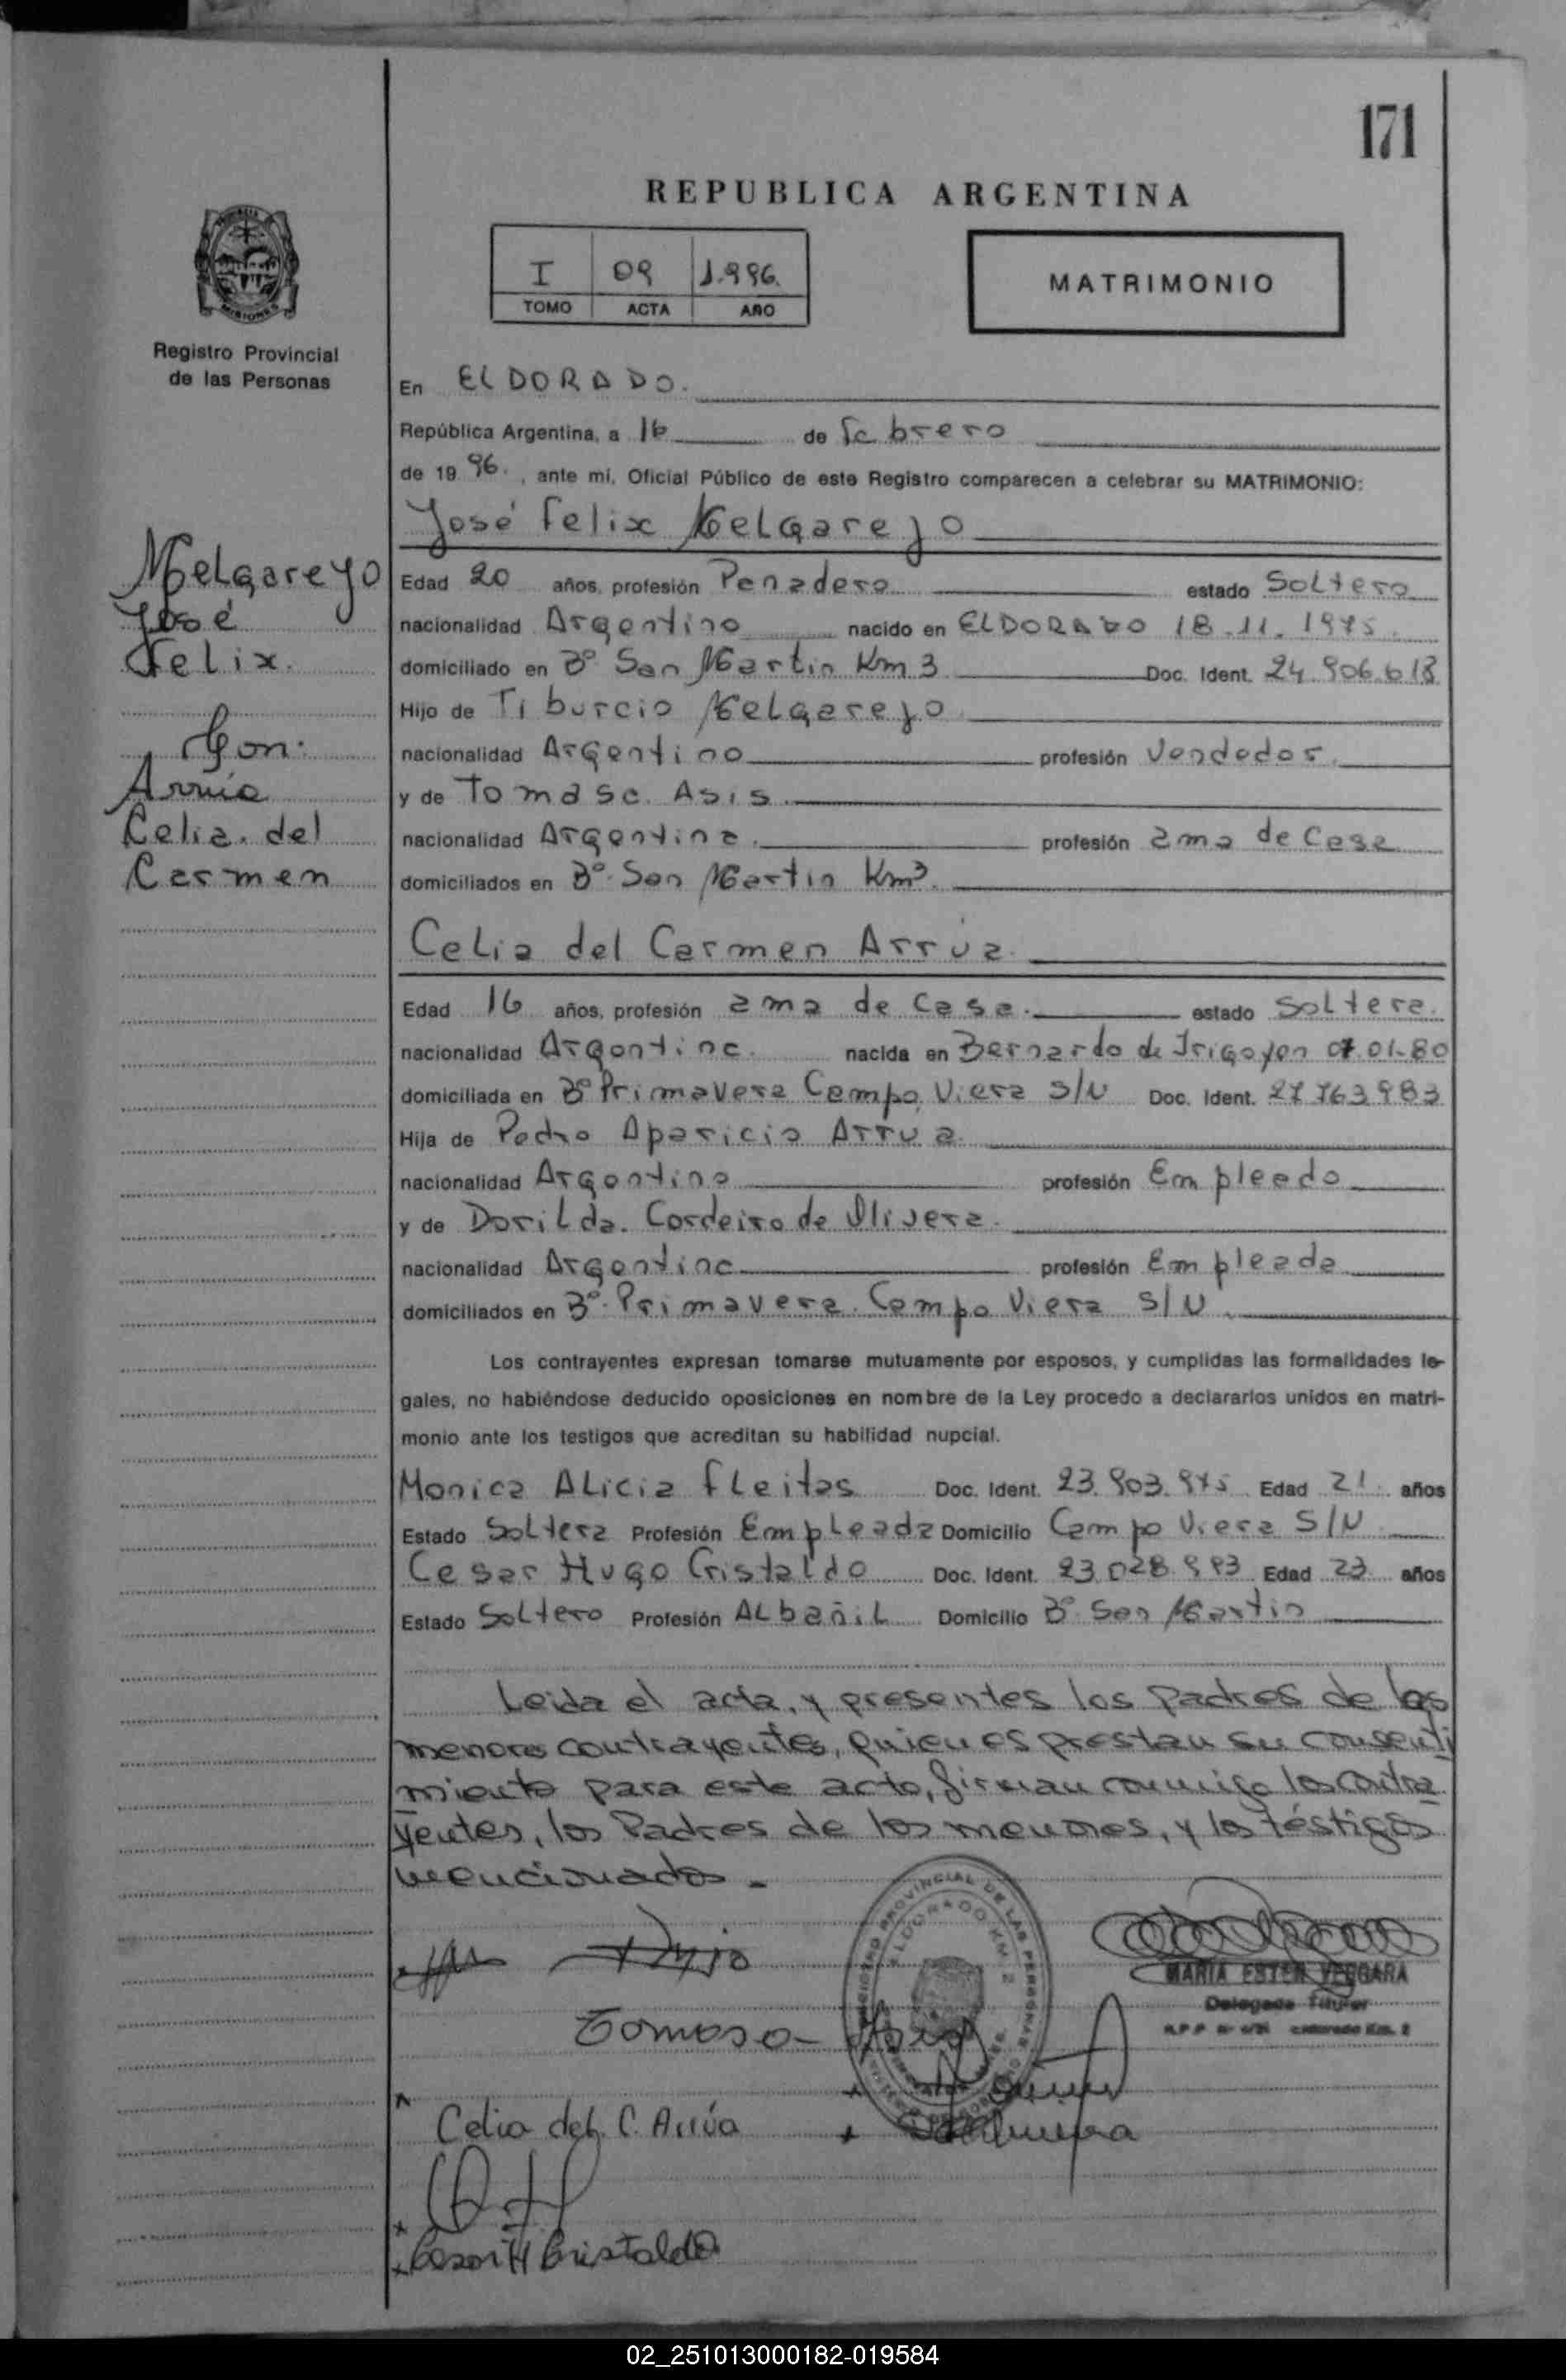 171
REPUBLICA ARGENTINA
I 09 1.996.
TOMO ACTA AÑO
MATRIMONIO
MISIONES
Registro Provincial
de las Personas
En ELDORADO.
República Argentina, a 16 de Febrero
de 19 96. , ante mí, Oficial Público de este Registro comparecen a celebrar su MATRIMONIO:
José Felix Melgarejo
Melgarejo
José
Felix.
Con:
Arrúa
Celia. del
Carmen
Edad 20 años, profesión Panadero estado Soltero
nacionalidad Argentino nacido en ELDORADO 18.11.1975.
domiciliado en B° San Martin Km 3 Doc. Ident. 24.906.618
Hijo de Tiburcio Melgarejo
nacionalidad Argentino profesión Vendedor.
y de Tomasa Asis.
nacionalidad Argentina. profesión ama de Casa
domiciliados en B°. San Martin Km3.
Celia del Carmen Arrúa.
Edad 16 años, profesión ama de Casa. estado Soltera.
nacionalidad Argentina. nacida en Bernardo de Irigoyen 07.01-80
domiciliada en B° Primavera Campo Viera S/N Doc. Ident. 27.763983
Hija de Pedro Aparicio Arrua.
nacionalidad Argentino profesión Empleado
y de Dorilda. Cordeiro de Olivera.
nacionalidad Argentina profesión Empleada
domiciliados en B°. Primavera. Campo Viera S/N.
Los contrayentes expresan tomarse mutuamente por esposos, y cumplidas las formalidades le-
gales, no habiéndose deducido oposiciones en nombre de la Ley procedo a declararlos unidos en matri-
monio ante los testigos que acreditan su habilidad nupcial.
Monica Alicia Fleitas Doc. Ident. 23.903.975 Edad 21 años
Estado Soltera Profesión Empleada Domicilio Campo Viera S/N
Cesar Hugo Cristaldo Doc. Ident. 23.028.993 Edad 23 años
Estado Soltero Profesión Albañil Domicilio B°. San Martin
Leida el acta, y presentes los Padres de los
menores contrayentes, quienes prestan su consenti
miento para este acto, firman conmigo los contra
yentes, los Padres de los menores, y los téstigos
mencionados.-
REGISTRO PROVINCIAL DE LAS PERSONAS
ELDORADO KM 2
MARIA ESTER VERGARA
Delegada Titular
Tomasa Asis
Celia del. C. Arrúa
Cesar H Cristaldo
02_251013000182-019584